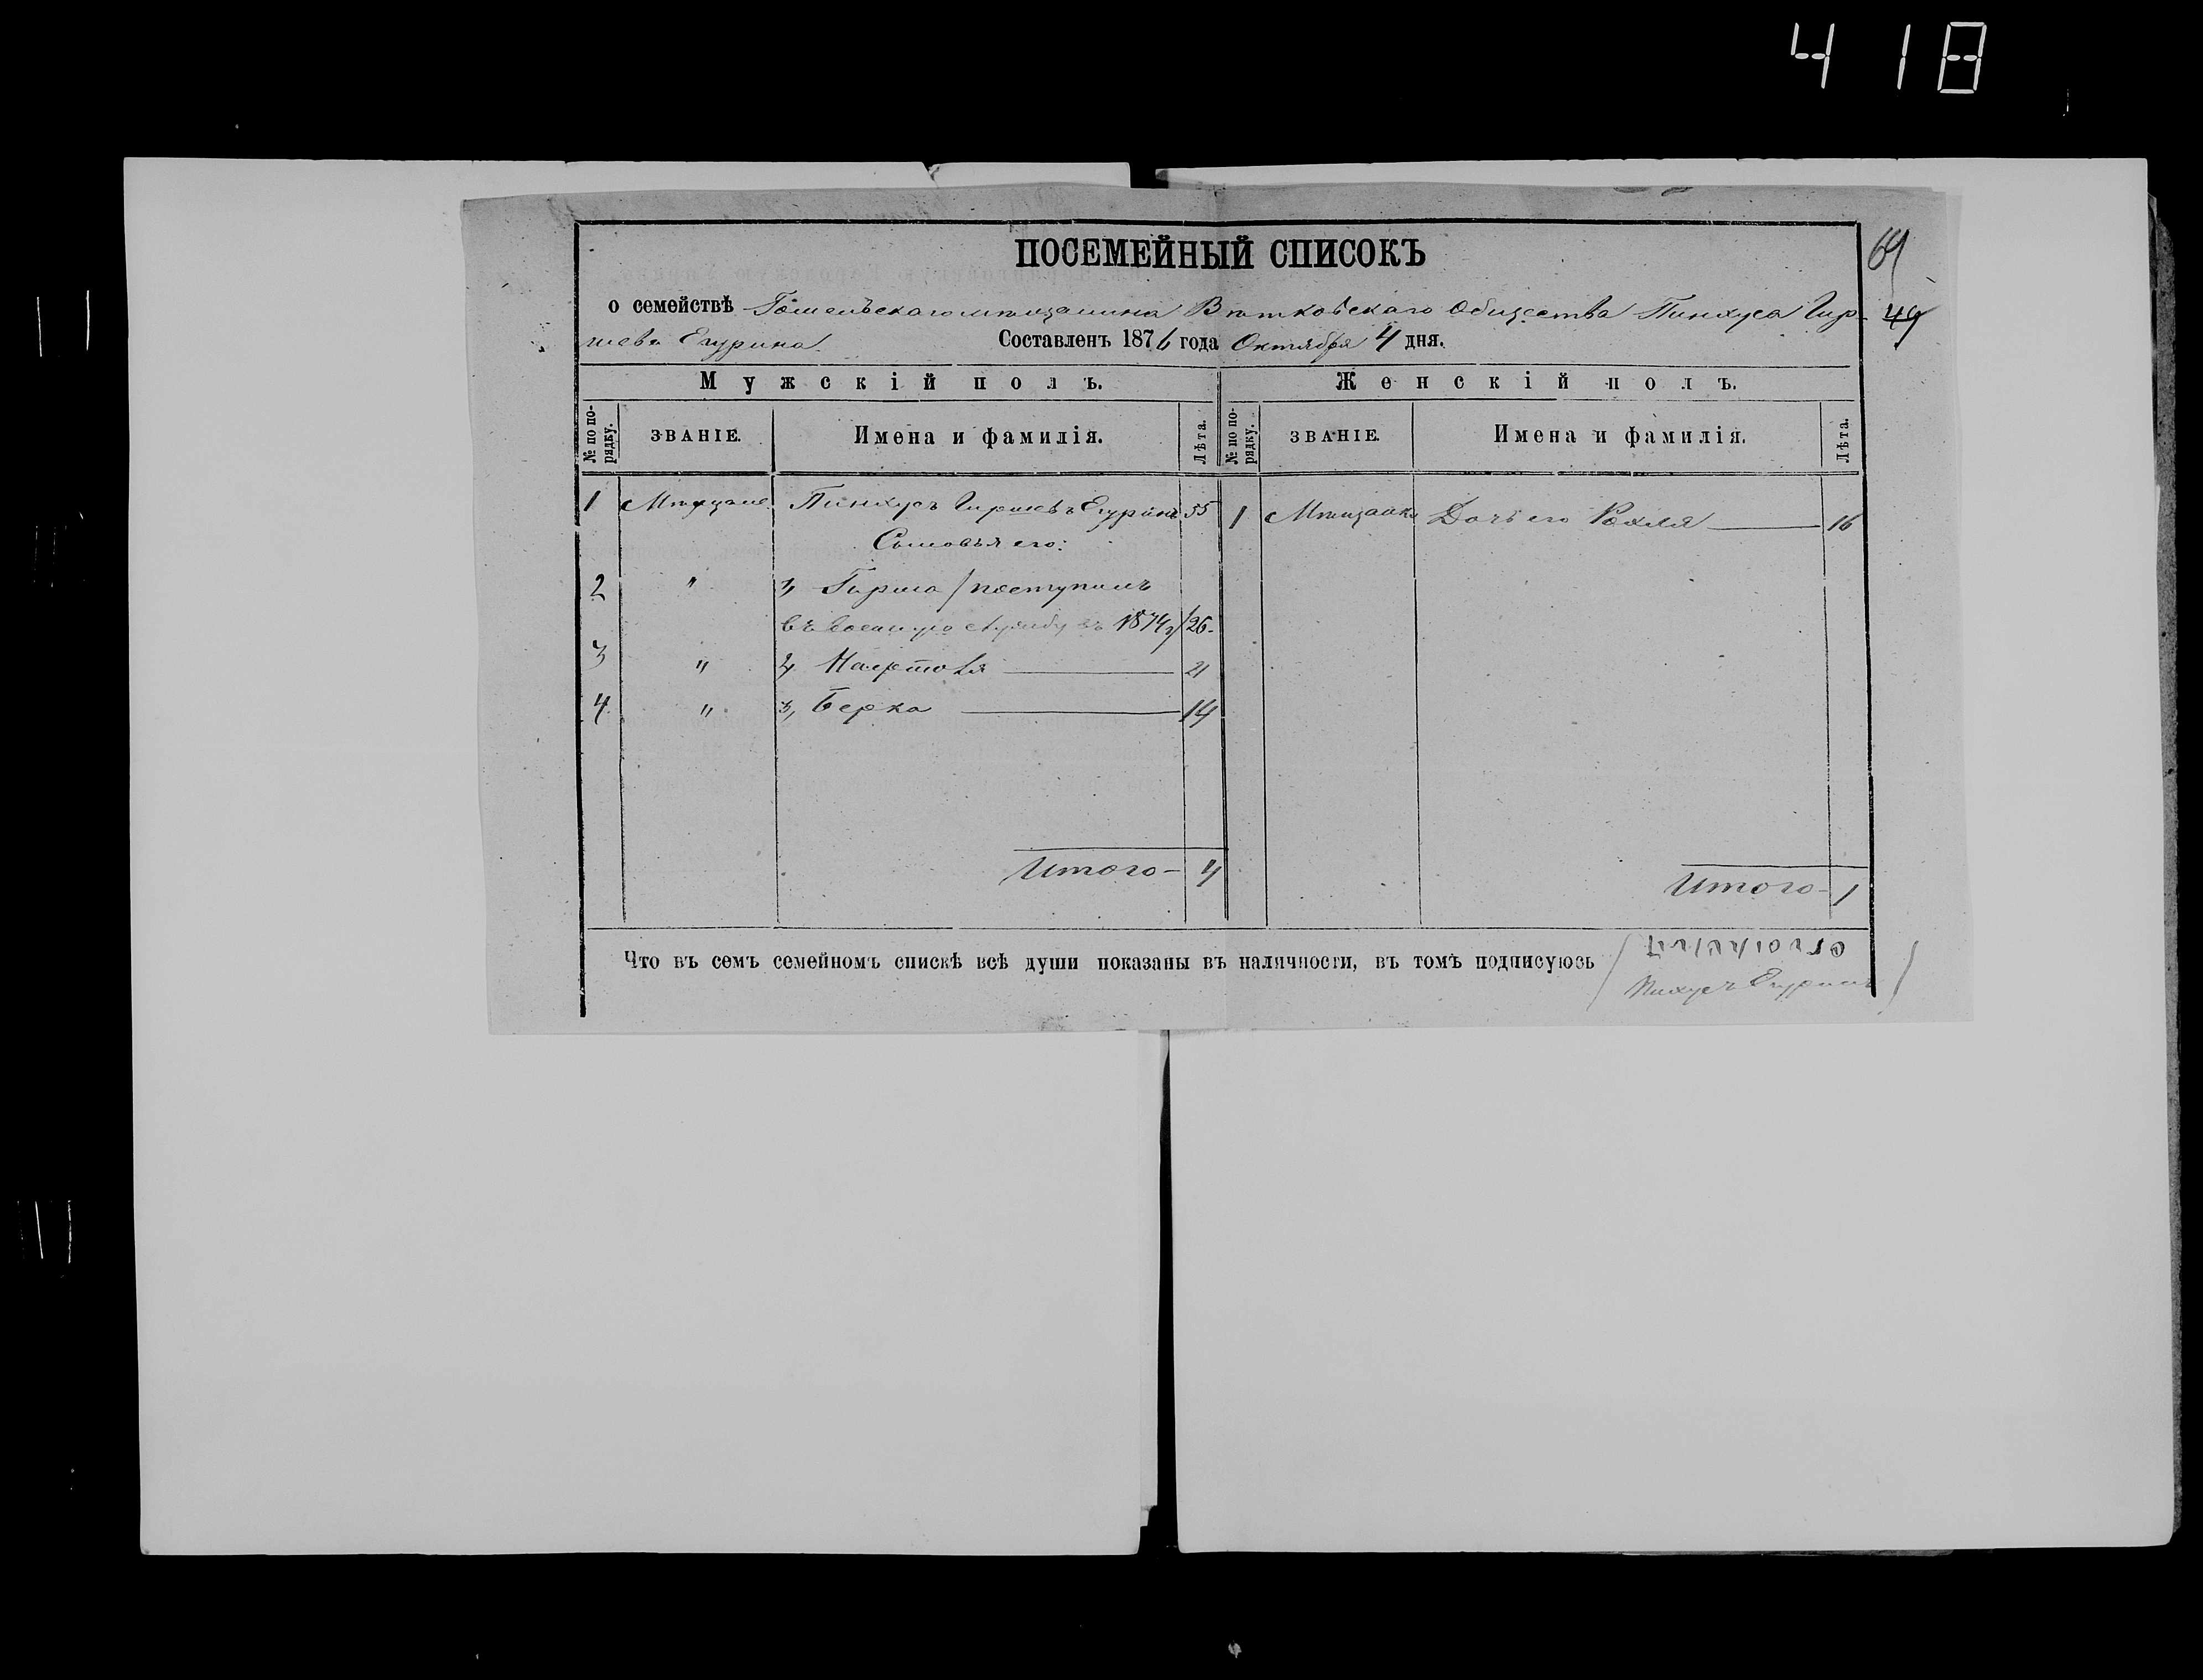 418
ПОСЕМЕЙНЫЙ СПИСОКЪ
64
о семействѣ Гомельскаго мѣщанина Вѣтковскаго Общества Пинхуса Гир-
49
шева Егурина. Составленъ 1876 года Октября 4 дня.
Мужскій полъ. Женскій полъ.
№ по по-рядку. ЗВАНІЕ. Имена и фамилія. Лѣта. № по по-рядку. ЗВАНІЕ. Имена и фамилія. Лѣта.
1 Мѣщане. Пинхусъ Гиршевъ Егуринъ 55 1 Мѣщанка Дочь его Рохля 16
Сыновья его:
2 " 1, Гирша / поступилъ
въ военную службу въ 1874 г/ 26
3 " 2, 21
4 " 3, Берка 14
Итого - 4
Итого - 1
Что въ семъ семейномъ спискѣ всѣ души показаны въ наличности, въ томъ подписуюсь
Пинхусъ Егуринъ